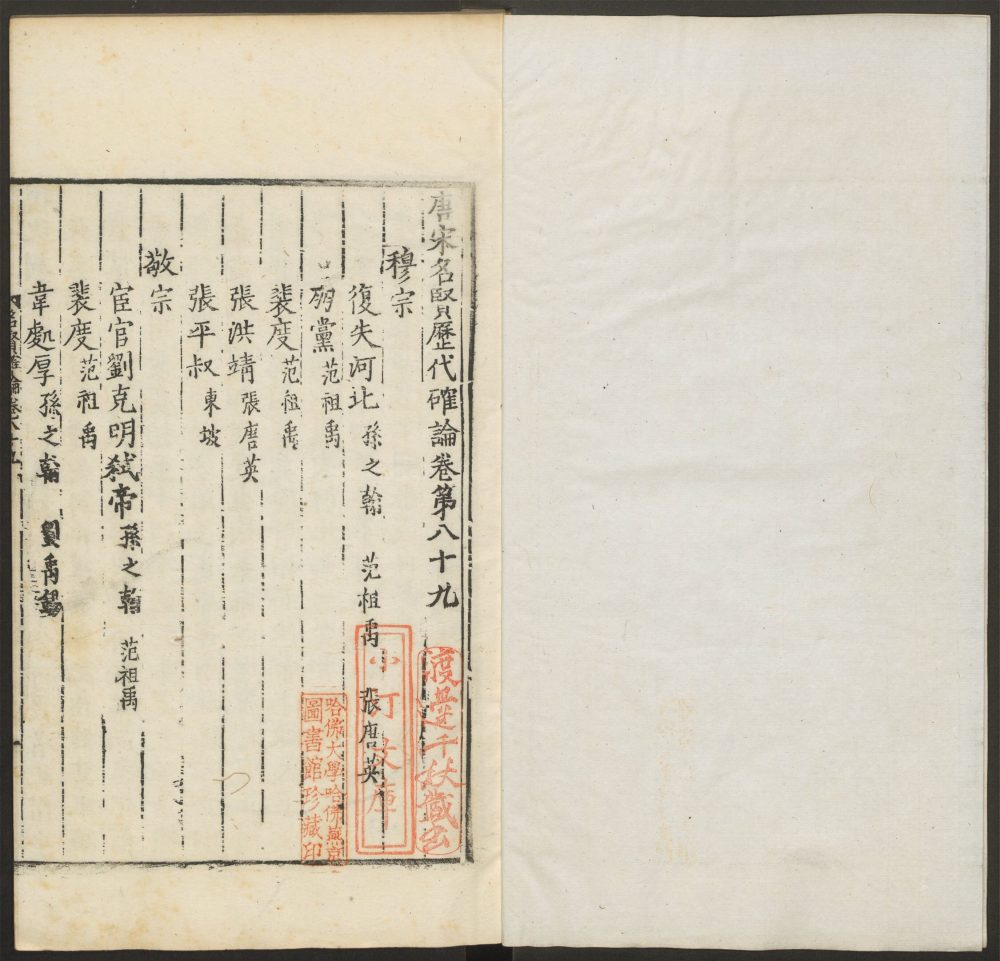 唐宋名賢歷代確論卷第八十九
穆宗
復失河北 孫之翰 范祖禹 張唐英
朋黨 范祖禹
裴度 范祖禹
張洪靖 張唐英
張平叔 東坡
敬宗
宦官劉克明弑帝 孫之翰 范祖禹
裴度 范祖禹
韋處厚 孫之翰 劉禹錫
名賢確論卷八十九
渡邊千秋藏書
小汀文庫
哈佛大學哈佛燕京
圖書館珍藏印